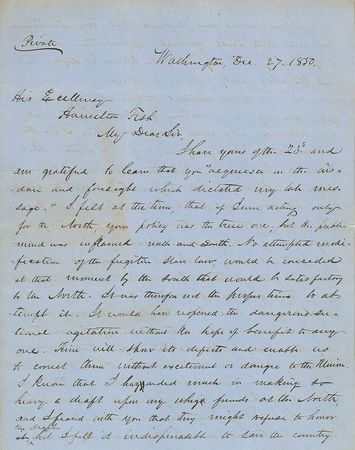 Private
Washington, Dec 27. 1850.
His Excellency
Hamilton Fish
My Dear Sir,
I have yours of the 23d and
am grateful to learn that you "acquiesce in the wis-
dom and foresight which dictated my late mes-
sage." I felt at the time, that if I were acting only
for the North, your policy was the true one, but the public
mind was inflamed north and South. No attempted modi-
fication of the fugitive slave law, would be conceded
at that moment by the South that would be satisfactory
to the North. It was therefore not the proper time to at-
tempt it. It would have reopened the dangerous sec-
tional agitation without the hope of benefit to any
one. Time will show its defects and enable us
to correct them without excitement or danger to the Union.
I know that I hazarded much in making so
heavy a draft upon my whig friends at the North
and I feared with you that they might refuse to honor
the draft
but I felt it indispensable to save the country